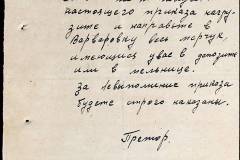 настоящего приказа нагру-
зите и направьте в
Варваровку весь марчук,
имеющийся у вас в депозите
или в мельнице.
За невыполнение приказа
будете строго наказаны.
Претор.